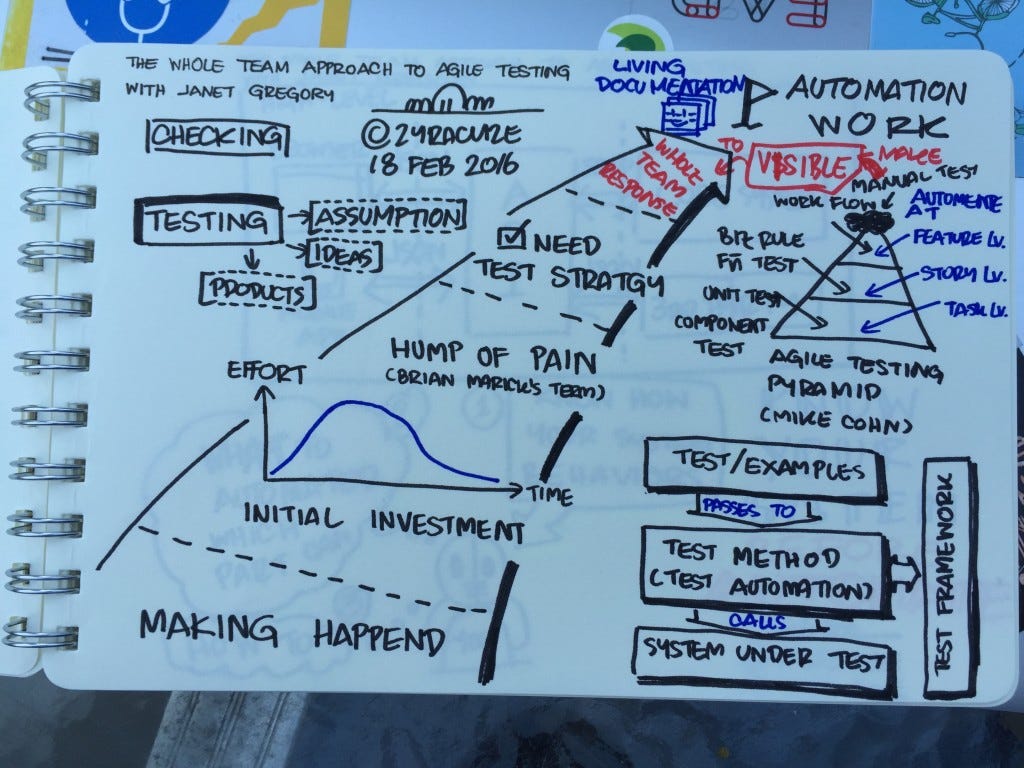 THE WHOLE TEAM APPROACH TO AGILE TESTING
WITH JANET GREGORY
18 FEB 2016
CHECKING
TESTING
ASSUMPTION
IDEAS
PRODUCTS
LIVING
DOCUMENTATION
AUTOMATION
WORK
WHOLE
TEAM
RESPONSE
TO
VISIBLE
MAKE
MANUAL TEST
WORK FLOW
AUTOMATE
AT
FEATURE LV.
STORY LV.
TASK LV.
BIZ RULE
TEST
UNIT TEST
COMPONENT
TEST
AGILE TESTING
PYRAMID
(MIKE COHN)
NEED
TEST STRATGY
HUMP OF PAIN
(BRIAN MARICK'S TERM)
EFFORT
TIME
INITIAL INVESTMENT
MAKING HAPPEND
TEST/EXAMPLES
PASSES TO
TEST METHOD
(TEST AUTOMATION)
CALLS
SYSTEM UNDER TEST
TEST FRAMEWORK